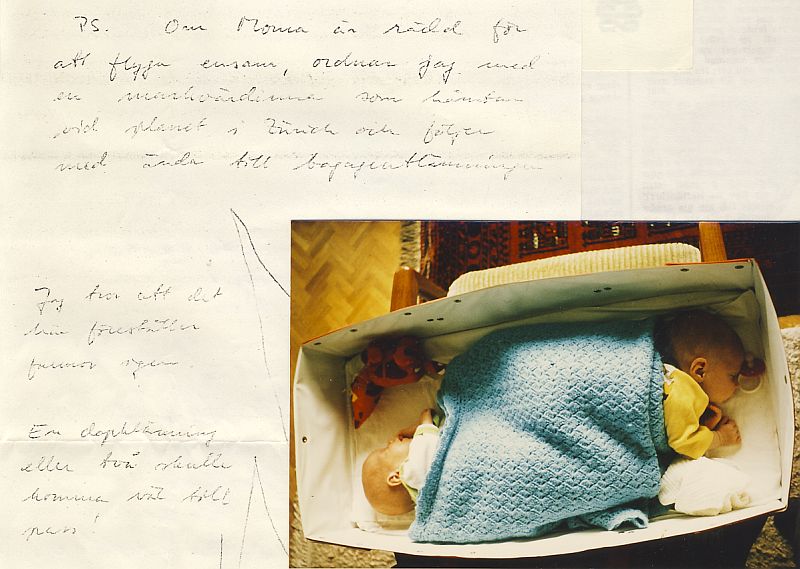 PS. Om Moma är rädd för
att flyga ensam, ordnar jag med
en markvärdinna som hämtar
vid planet i Zürich och följer
med ända till bagageutlämningen
Jag tror att det
här föreställer
farmor igen.
En dopklänning
eller två skulle
komma väl till
pass!